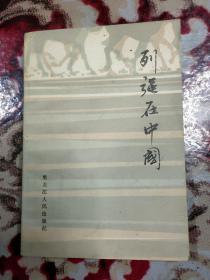 列强在中國
黑龙江人民出版社